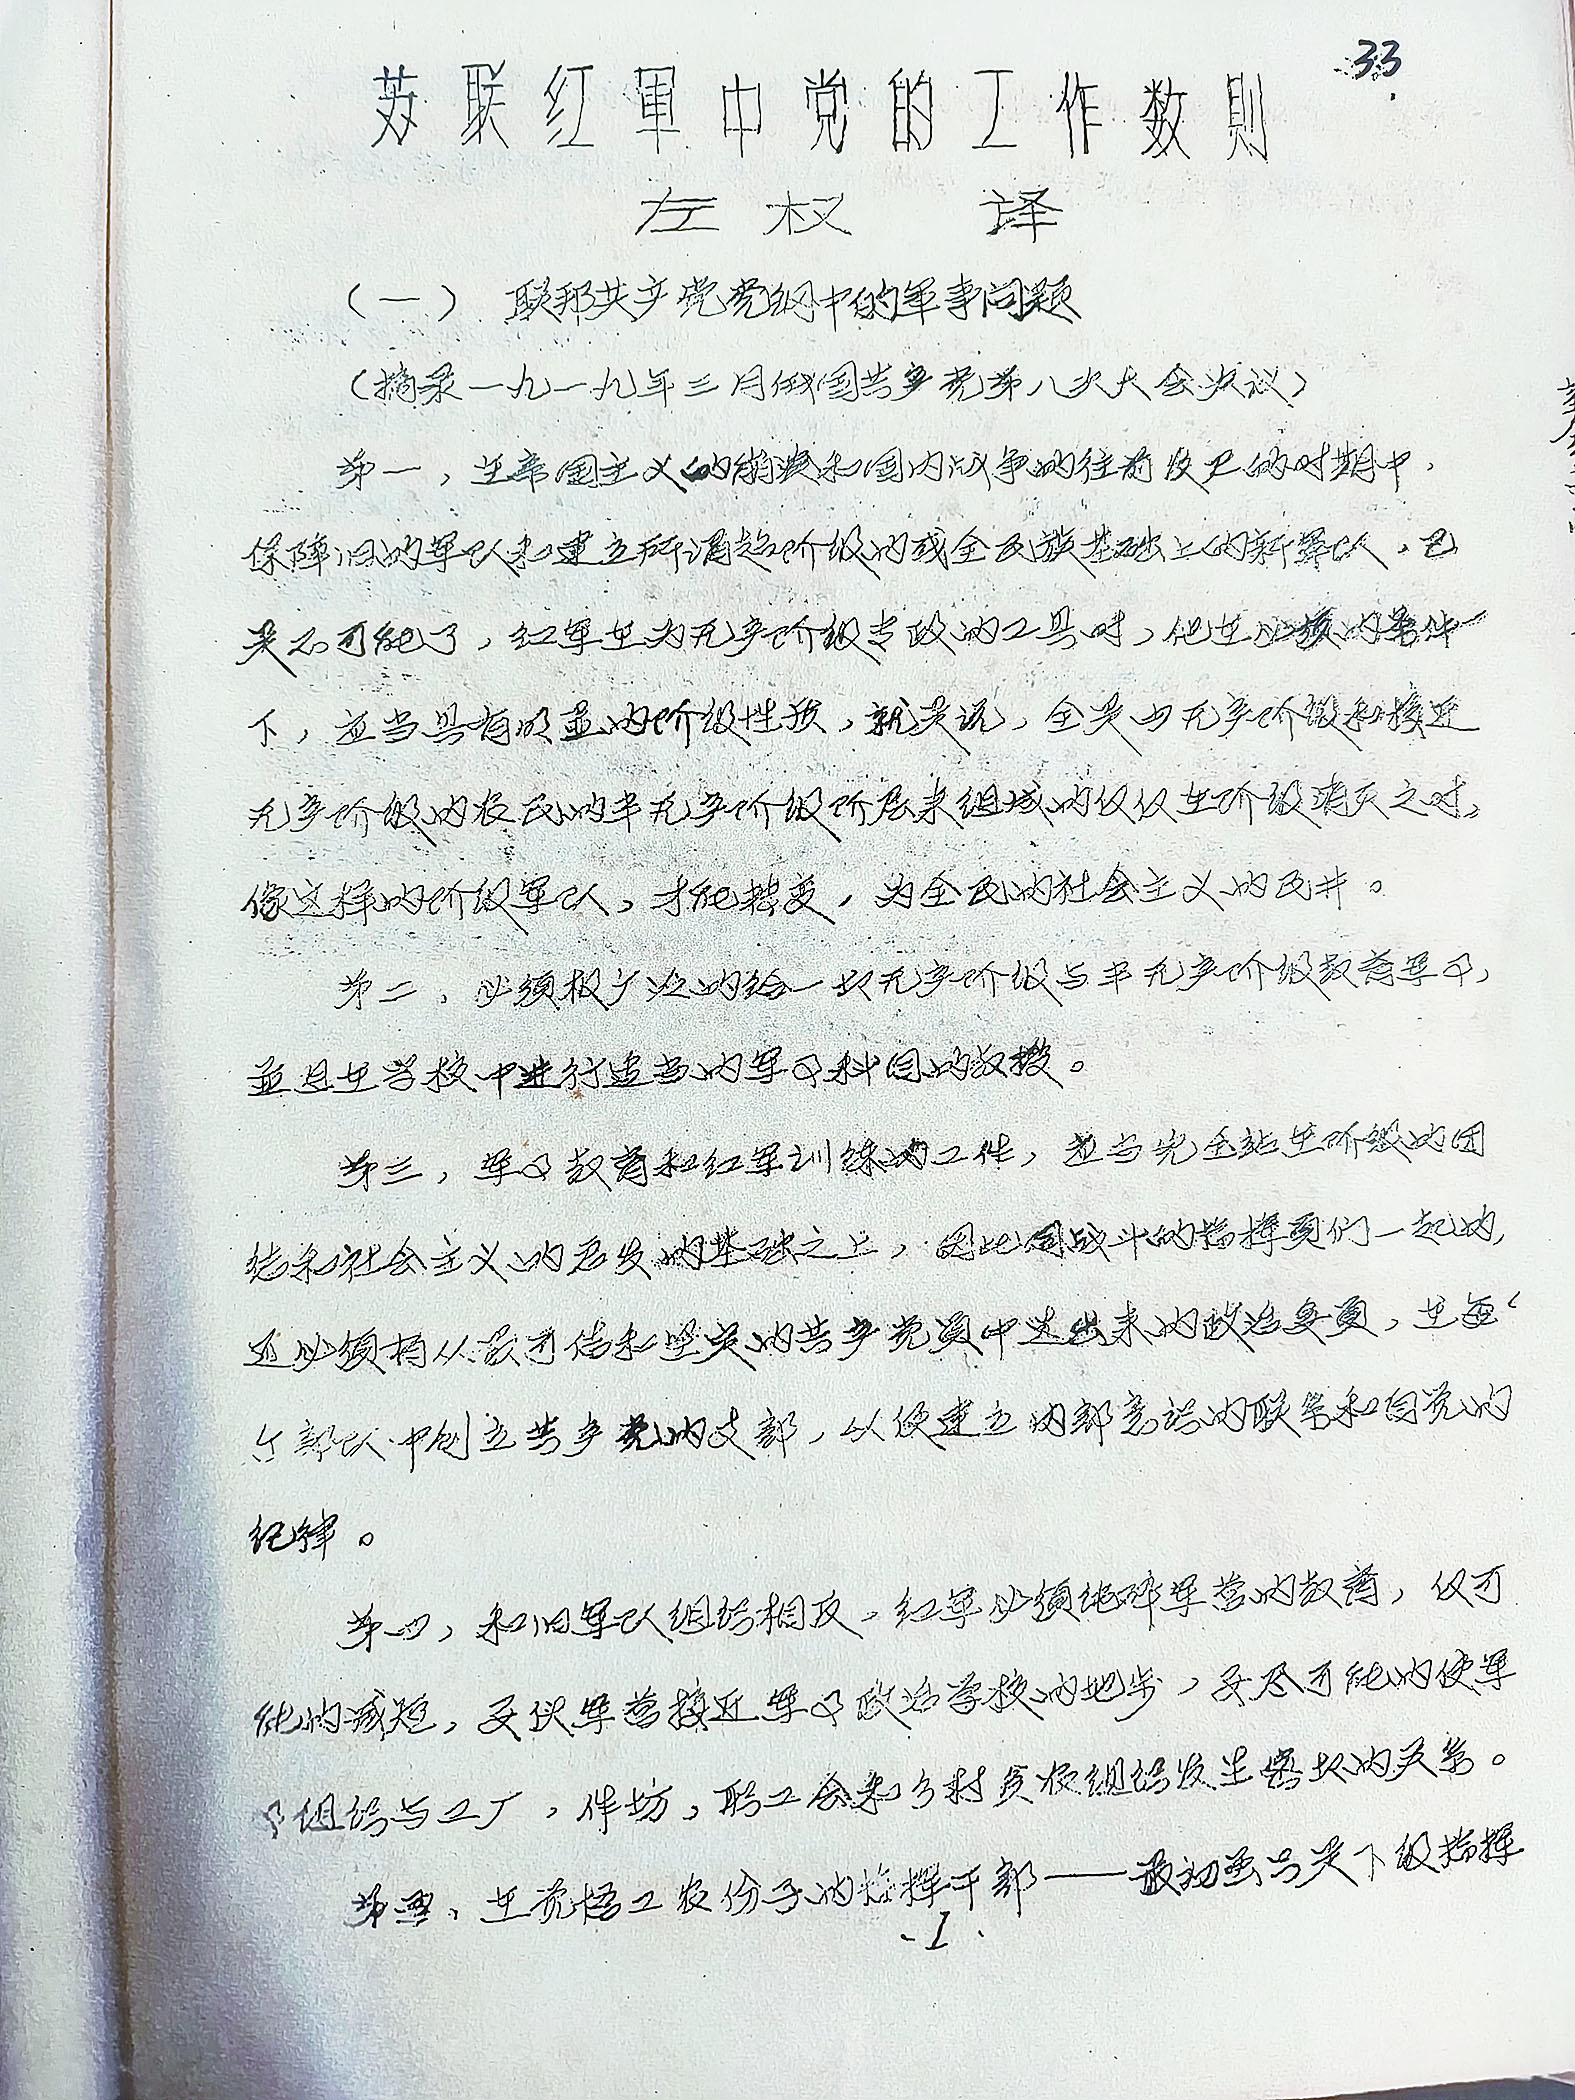 33
苏联红軍中党的工作数則
左权 译
（一） 联邦共产党党纲中的军事问题
（摘录一九一九年三月俄国共产党第八次大会决议）
第一，在帝国主义的崩溃和国内战争的往前发展的时期中，
保障旧的军队和建立所谓超阶级的或全民族基础上的新军队，已
是不可能了，红军在为无产阶级专政的工具时，他在必须的条件
下，应当具有明显的阶级性质，就是说，全是由无产阶级和接近
无产阶级的农民的半无产阶级阶层来组成的仅仅在阶级消灭之时，
像这样的阶级军队，才能转变，为全民的社会主义的民井。
第二，必须极广泛的给一切无产阶级与半无产阶级教育军事，
並且在学校中进行适当的军事科目的教授。
第三，军事教育和红军训练的工作，应当完全站在阶级的团
结和社会主义的启发的基础之上，因此同战斗的指挥员们一起的，
还必须有从最可信和坚定的共产党员中选出来的政治委员，在每
个部队中创立共产党的支部，以便建立内部意识的联系和自觉的
纪律。
第四，和旧军队组织相反，红军必须纯碎军营的教育，仅可
能的减短，要使军营接近军事政治学校的地步，要尽可能的使军
事组织与工厂，作坊，职工会和乡村贫农组织发生密切的关系。
第五、在觉悟工农份子的指挥干部——最初虽只是下级指挥
·1·